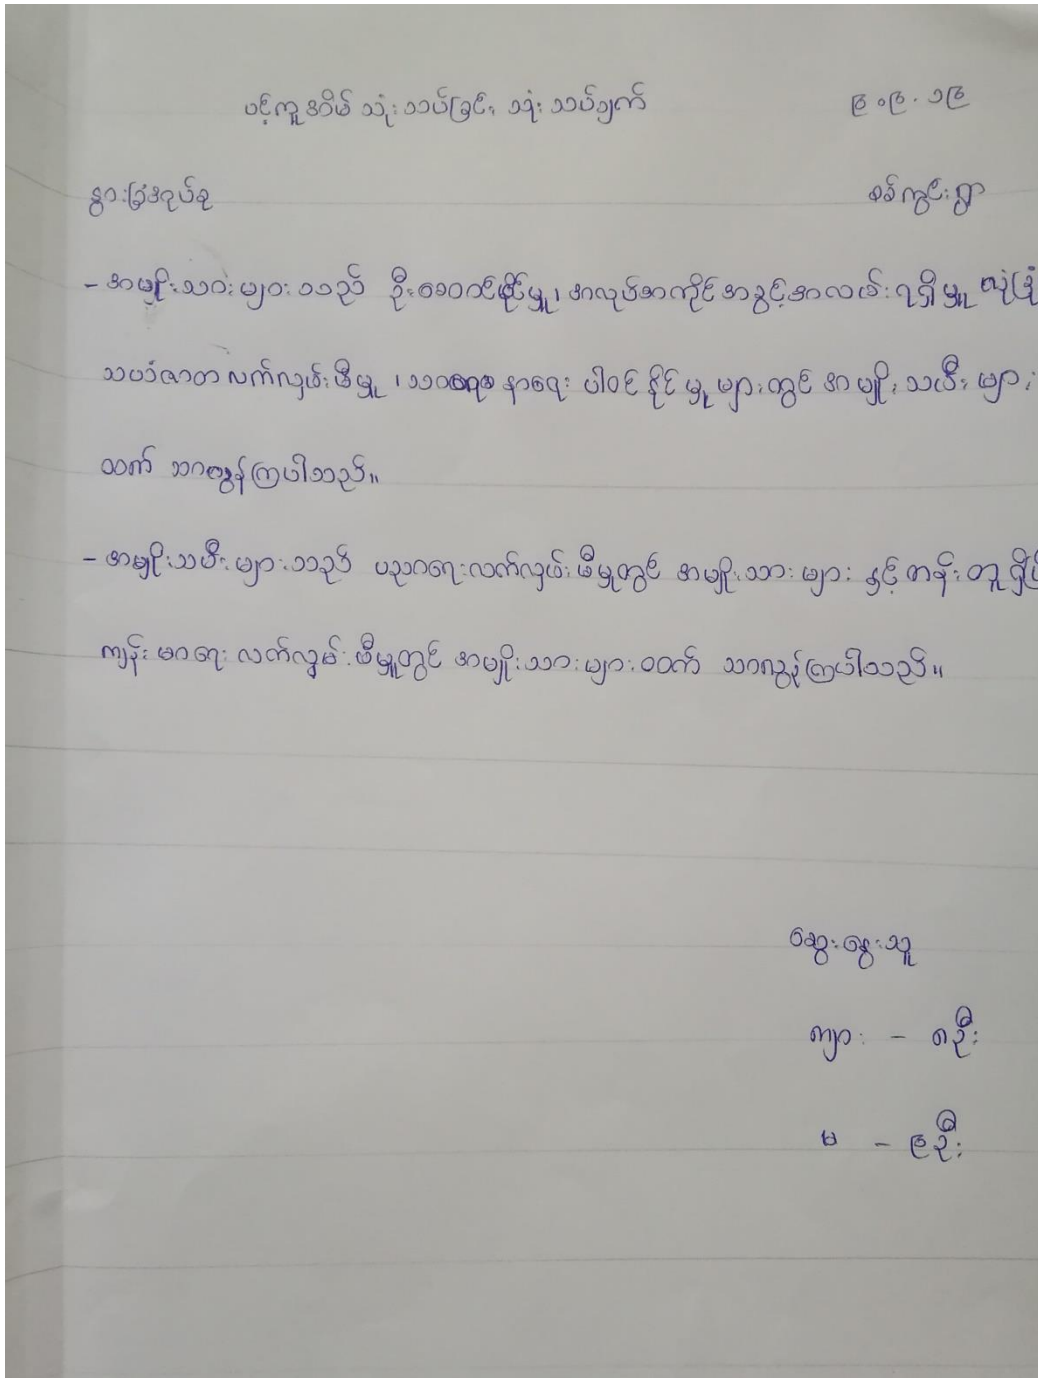 ပင့်ကူအိမ် သုံးသပ်ခြင်း သုံးသပ်ချက် ၉.၉.၁၉
နွားခြံအုပ်စု စစ်ကွင်းရွာ
- အမျိုးသားများသည် ဦးဆောင်နိုင်မှု၊ အလုပ်အကိုင်အခွင့်အလမ်းရရှိမှု လုံခြုံ
သယံဇာတ လက်လှမ်းမီမှု ၊ သာရေး နာရေး ပါဝင်နိုင်မှု များတွင် အမျိုးသမီးများ
ထက် သာလွန်ကြပါသည်။
- အမျိုးသမီးများသည် ပညာရေးလက်လှမ်းမီမှုတွင် အမျိုးသားများ နှင့် တန်းတူရှိပြီ
ကျန်းမာရေး လက်လှမ်းမီမှုတွင် အမျိုးသားများထက် သာလွန်ကြပါသည်။
ဆွေးနွေးသူ
ကျား - ၈ဦး
မ - ၉ဦး